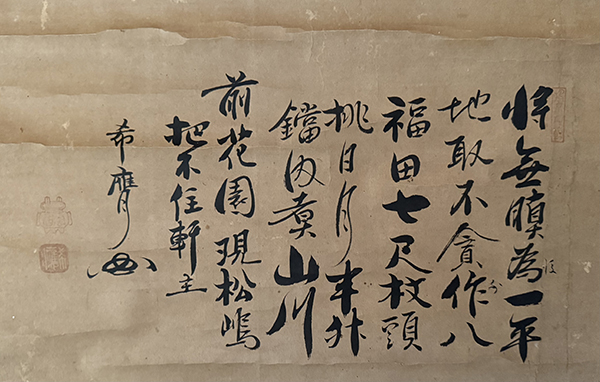 将無瞋為一平
地取不貪作八
福田七尺杖頭
挑日月半升
鐺内煮山川
前花園現松嶋
把不住軒主
希膺